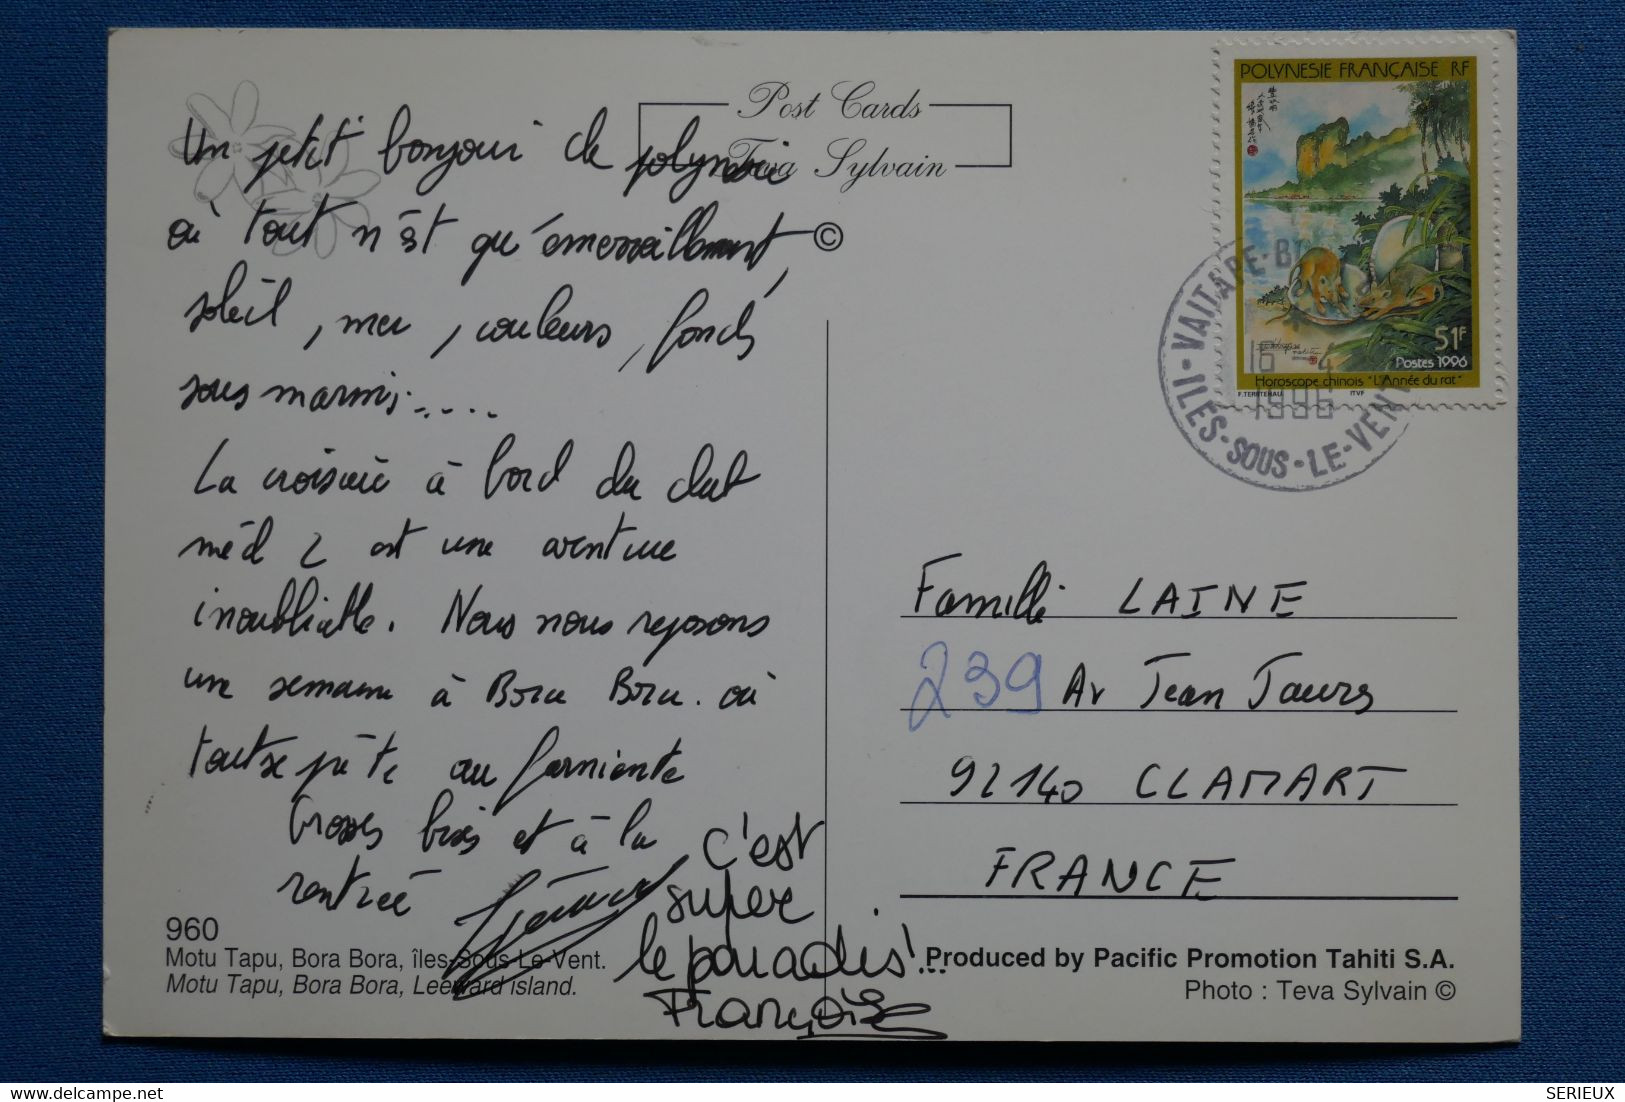 Post Cards
Teva Sylvain
©
Un petit bonjour de polynésie
où tout n'est qu'émerveillement,
soleil, mer, couleurs, fonds
sous marins.....
La croisière à bord du club
méd 2 est une aventure
inoubliable. Nous nous reposons
une semaine à Bora Bora. où
tout se prête au farniente
Grosses bises et à la
rentrée
c'est
super
le paradis!...
Françoise
960
Motu Tapu, Bora Bora, îles-Sous-Le-Vent.
Motu Tapu, Bora Bora, Leeward island.
POLYNESIE FRANÇAISE RF
51F
Postes 1996
Horoscope chinois "L'Année du rat"
F.TERIITEHAU ITVF
VAITAPE-B
16 4
1996
ILES-SOUS-LE-VENT
Famille LAINE
239 Av Jean Jaures
92140 CLAMART
FRANCE
Produced by Pacific Promotion Tahiti S.A.
Photo : Teva Sylvain ©
delcampe.net
SERIEUX